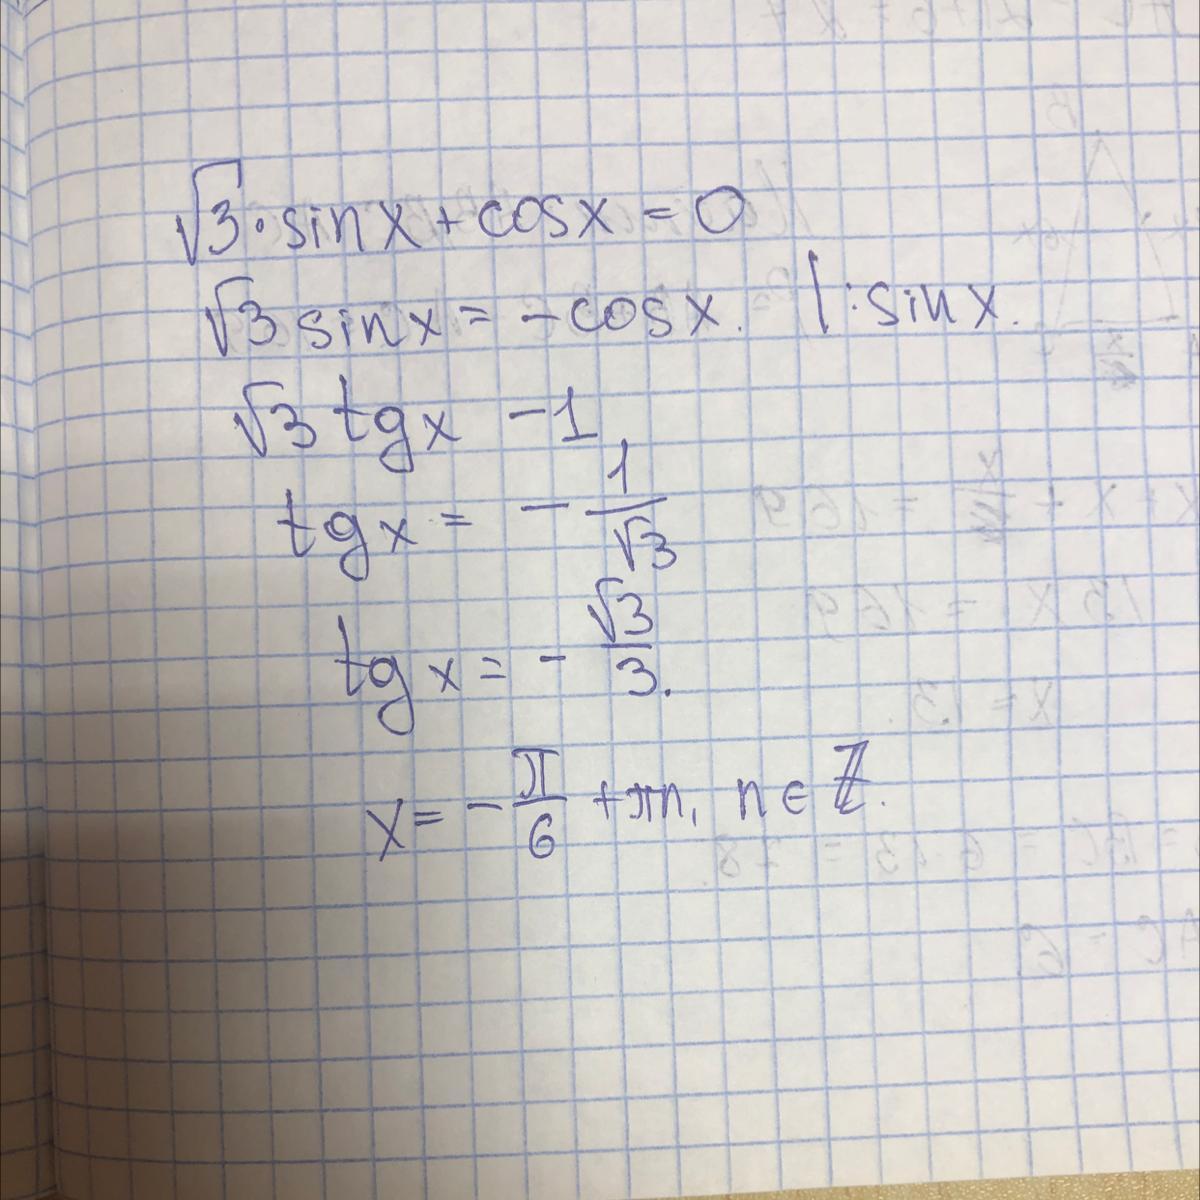 √3·sinx+cosx=0
√3 sinx=-cosx. |:sinx.
√3 tgx -1
tgx = -1/√3
tgx = -√3/3.
x=-π/6+πn, n∈ℤ.